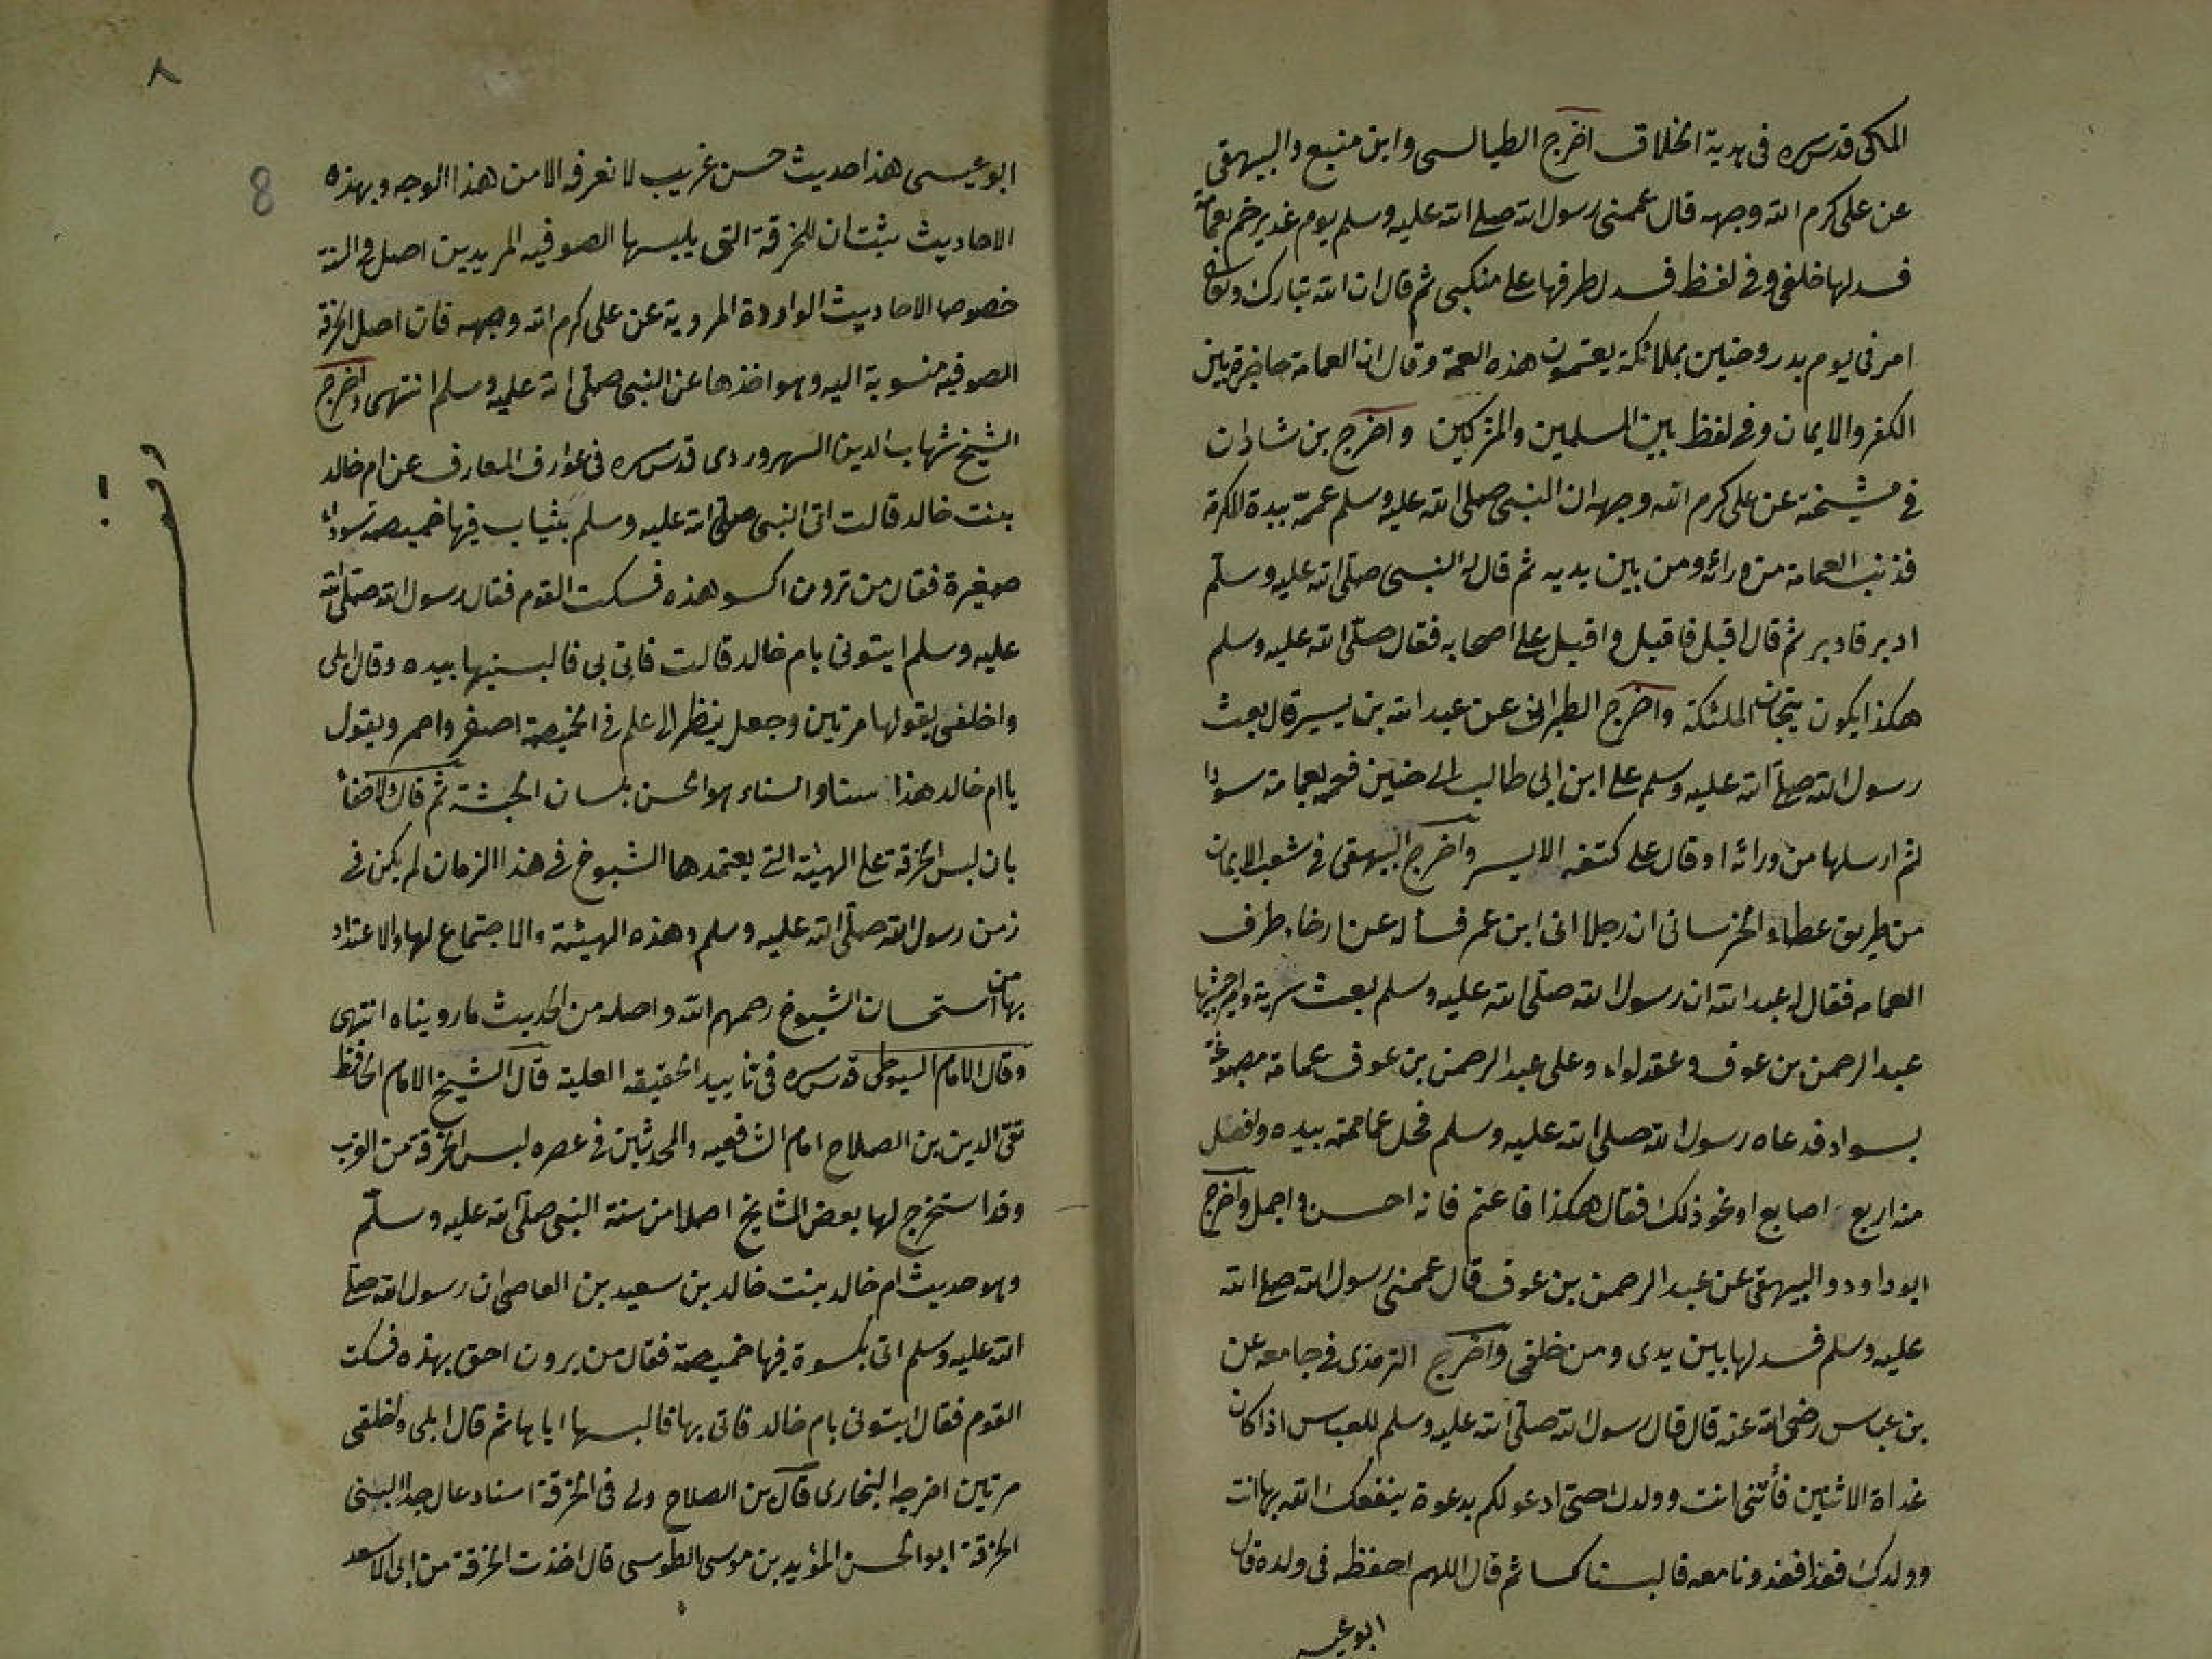 المكى قدس سره فى هدية الخلاق اخرج الطيالسى وابن منيع والبيهقى
عن على كرم الله وجهه قال عممنى رسول الله صلى الله عليه وسلم يوم غدير خم بعمامة
فسدلها خلفى وفى لفظ فسدل طرفها على منكبى ثم قال ان الله تبارك وتعالى
امدنى يوم بدر وحنين بملائكة يعتمون هذه العمة وقال ان العمامة حاجزة بين
الكفر والايمان وفى لفظ بين المسلمين والمشركين واخرج بن شاذان
فى مشيخته عن على كرم الله وجهه ان النبى صلى الله عليه وسلم عممه بيده الكرمة
فذنب العمامة من ورائه ومن بين يديه ثم قال له النبى صلى الله عليه وسلم
ادبر فادبر ثم قال اقبل فاقبل واقبل على اصحابه فقال صلى الله عليه وسلم
هكذا يكون تيجان الملئكة واخرج الطبرانى عن عبد الله بن يسير قال بعث
رسول الله صلى الله عليه وسلم على ابن ابى طالب الى حنين فعممه بعمامة سودا
ثم ارسلها من ورائه او قال على كتفه الايسر واخرج البيهقى فى شعب الايمان
من طريق عطاء الخرسانى ان رجلا اتى ابن عمر فسأله عن ارخاء طرف
العمامه فقال له عبد الله ان رسول الله صلى الله عليه وسلم بعث سرية وامر عليها
عبد الرحمن بن عوف وعقد لواء وعلى عبد الرحمن بن عوف عمامة مصبوغة
بسواد فدعاه رسول الله صلى الله عليه وسلم فحل عمامته بيده وافضل
منه اربع اصابع او نحو ذلك فقال هكذا فاعتم فانه احسن واجمل واخرج
ابو داود والبيهقى عن عبد الرحمن بن عوف قال عممنى رسول الله صلى الله
عليه وسلم فسدلها بين يدى ومن خلفى واخرج الترمذى فى جامعه عن
بن عباس رضى الله عنه قال قال رسول الله صلى الله عليه وسلم للعباس اذا كان
غداة الاثنين فأتنى انت وولدك حتى ادعو لكم بدعوة ينفعك الله بها انت
وولدك فغدا فغدونا معه فالبسنا كسا ثم قال اللهم احفظه فى ولده قال
ابو عيسى
٨
8
ابو عيسى هذا حديث حسن غريب لا نعرفه الا من هذا الوجه وبهذه
الاحاديث يثبت ان للخرقة التى يلبسها الصوفيه المريدين اصل فى السنة
خصوصا الاحاديث الواردة المروية عن على كرم الله وجهه فان اصل الخرقة
الصوفيه منسوبة اليه وهو اخذها عن النبى صلى الله عليه وسلم انتهى واخرج
الشيخ شهاب الدين السهروردى قدس سره فى عوارف المعارف عن ام خالد
بنت خالد قالت اتى النبى صلى الله عليه وسلم بثياب فيها خميصة سوداء
صغيرة فقال من ترون اكسو هذه فسكت القوم فقال رسول الله صلى الله
عليه وسلم ايتونى بام خالد قالت فاتى بى فالبسنيها بيده وقال ابلى
واخلقى يقولها مرتين وجعل ينظر الى علم فى الخميصة اصفر واحمر ويقول
يا ام خالد هذا سناو السناء هو الحسن بلسان الحبشة ثم قال ولا خفاء
بان لبس الخرقة على الهيئة التى يعتمدها الشيوخ فى هذا الزمان لم يكن فى
زمن رسول الله صلى الله عليه وسلم وهذه الهيئة والاجتماع لها والاعتداد
بها من استحسان الشيوخ رحمهم الله واصله من الحديث ما رويناه انتهى
وقال الامام السيوطى قدس سره فى تاييد الحقيقه العلية قال الشيخ الامام الحافظ
تقى الدين بن الصلاح امام الشافعيه والمحدثين فى عصره لبس الخرقة من القرب
وقد استخرج لها بعض المشايخ اصلا من سنة النبى صلى الله عليه وسلم
وهو حديث ام خالد بنت خالد بن سعيد بن العاصى ان رسول الله صلى
الله عليه وسلم اتى بكسوة فيها خميصة فقال من يرون احق بهذه فسكت
القوم فقال ايتونى بام خالد فاتى بها فالبسها اياها ثم قال ابلى واخلقى
مرتين اخرجه البخارى قال بن الصلاح ولى فى الخرقة اسناد عال جدا البسنى
الخرقة ابو الحسن المؤيد بن موسى الطوسى قال اخذت الخرقة من ابى الاسعد